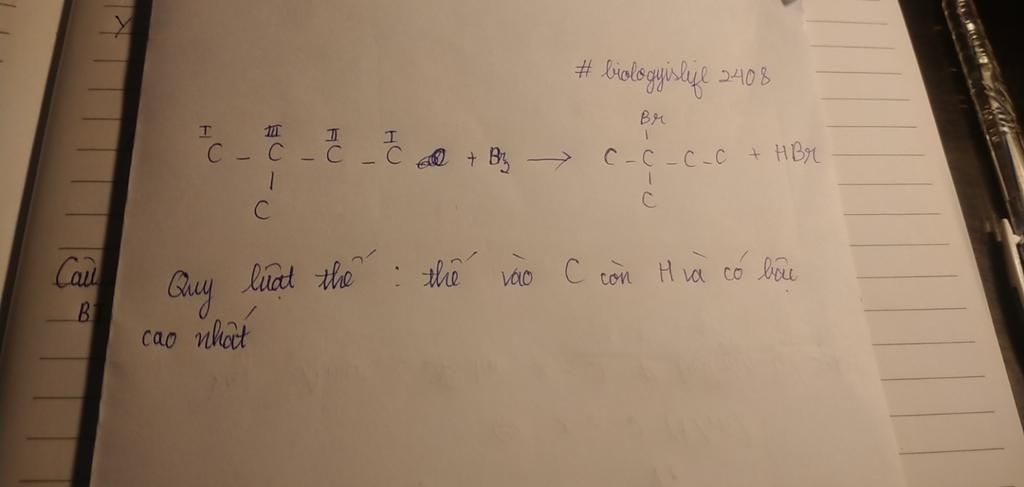 Y
# biologyislife 2408
Br
I III II I
C - C - C - C + Br2 → C - C - C - C + HBr
C C
Câu
Quy luật thế : thế vào C còn H và có bậc
B
cao nhất